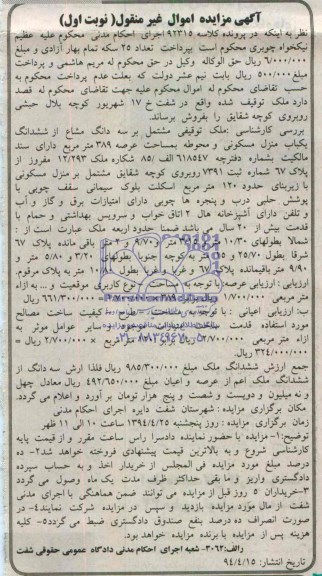 آگهی مزایده اموال غیر منقول( نوبت اول)
نظر به اینکه در پرونده کلاسه ۹۲۳۱۵ اجرای احکام مدنی محکوم علیه عظیم
نیکخواه چوبری محکوم است بپرداخت تعداد ۲۵ سکه تمام بهار آزادی و مبلغ
۶/۰۰۰/۰۰۰ ریال حق الوکاله وکیل در حق محکوم له مریم هاشمی و پرداخت
مبلغ ۵۰۰/۰۰۰ ریال بابت نیم عشر دولت که بعلت عدم پرداخت محکوم به
حسب تقاضای محکوم له اموال محکوم علیه جهت تقاضای محکوم له قصد
دارد ملک توقیف شده واقع در شفت خ ۱۷ شهریور کوچه بلال حبشی
روبروی کوچه شقایق را بفروش برساند.
بررسی کارشناسی :ملک توقیفی مشتمل بر سه دانگ مشاع از ششدانگ
یکباب منزل مسکونی و محوطه بمساحت عرصه ۳۸۹ متر مربع دارای سند
مالکیت بشماره دفترچه ۶۱۸۵۴۷ الف /۸۵ شکاره ملک ۱۲/۲۹۳ مفروز از
پلاک ۶۷ شماره ثبت ۷۳۹۱ روبروی کوچه شقایق مشتمل بر منزل مسکونی
با زیربنای حدود ۱۲۰ متر مربع اسکلت بلوک سیمانی سقف چوبی با
پوشش حلبی درب و پنجره ها چوبی دارای امتیازات برق و گاز و آب
و تلفن دارای آشپزخانه هال ۲ اتاق خواب و سرویس بهداشتی و حمام با
قدمت بیش از ۲۰ سال می باشد ضمنا حدود اربعه ملک عبارت است از :
شمالا بطولهای ۱۰/۳۰ متر
شرقا بطول ۲۵/۷۰ و کوچه جنوبا بطولهای ۳/۲۰ و ۵/۸۰ متر و
۹/۹۰ متر باقیمانده پلاک ۶۷ و غربا بطول متر به پلاک مرقوم.
ارزیابی : ارزیابی عرصه: با توجه به مساحت نوع کاربری موقعیت و ... به ازاء
متر مربعی ۱/۷۰۰/۰۰۰ ۶۶۱/۳۰۰/۰۰۰ ریال
ب: ارزیابی اعیانی : با توجه به مساحت کیفیت ساخت مصالح
مورد استفاده قدمت ساخت سایر عوامل موثر به
ازاء متر مربعی ۲/۷۰۰/۰۰۰ ریال ۲/۷۰۰/۰۰۰ =
۳۲۴/۰۰۰/۰۰۰ ریال
جمع ارزش ششدانگ ملک مبلغ ۹۸۵/۳۰۰/۰۰۰ ریال فلذا ارزش سه دانگ از
ششدانگ ملک اعم از عرصه و اعیان مبلغ ۴۹۲/۶۵۰/۰۰۰ ریال معادل چهل
و نه میلیون و دویست و شصت و پنج هزار تومان بر آورد و اعلام می گردد.
مکان برگزاری مزایده : شهرستان شفت دایره اجرای احکام مدنی
زمان برگزاری مزایده : روز پنجشنبه ۱۳۹۴/۴/۲۵ ساعت ۱۰ الی ۱۱ ظهر
توضیح:۱- مزایده با حضور نماینده دادسرا راس ساعت مقرر و از قیمت پایه
کارشناسی شروع و به بالاترین قیمت پیشنهادی فروخته خواهد شد۲- ده
درصد مبلغ مورد مزایده فی المجلس از خریدار اخذ و به حساب سپرده
دادگستری واریز و ما بقی حداکثر ظرف مدت یک ماه وصول می گردد
۳-خریداران ۵ روز قبل از مزایده می توانند ضمن هماهنگی با اجرای مدنی
شفت از مال مورد مزایده بازدید و سپس در مزایده شرکت نمایند۴- در
صورت انصراف ده درصد بنفع صندوق دادگستری ضبط می گردد۵- کلیه
هزینه پس از مزایده با برنده مزایده خواهد بود.
رالف:۳۰۶۲- شعبه اجرای احکام مدنی دادگاه عمومی حقوقی شفت
تاریخ انتشار: ۹۴/۴/۱۵